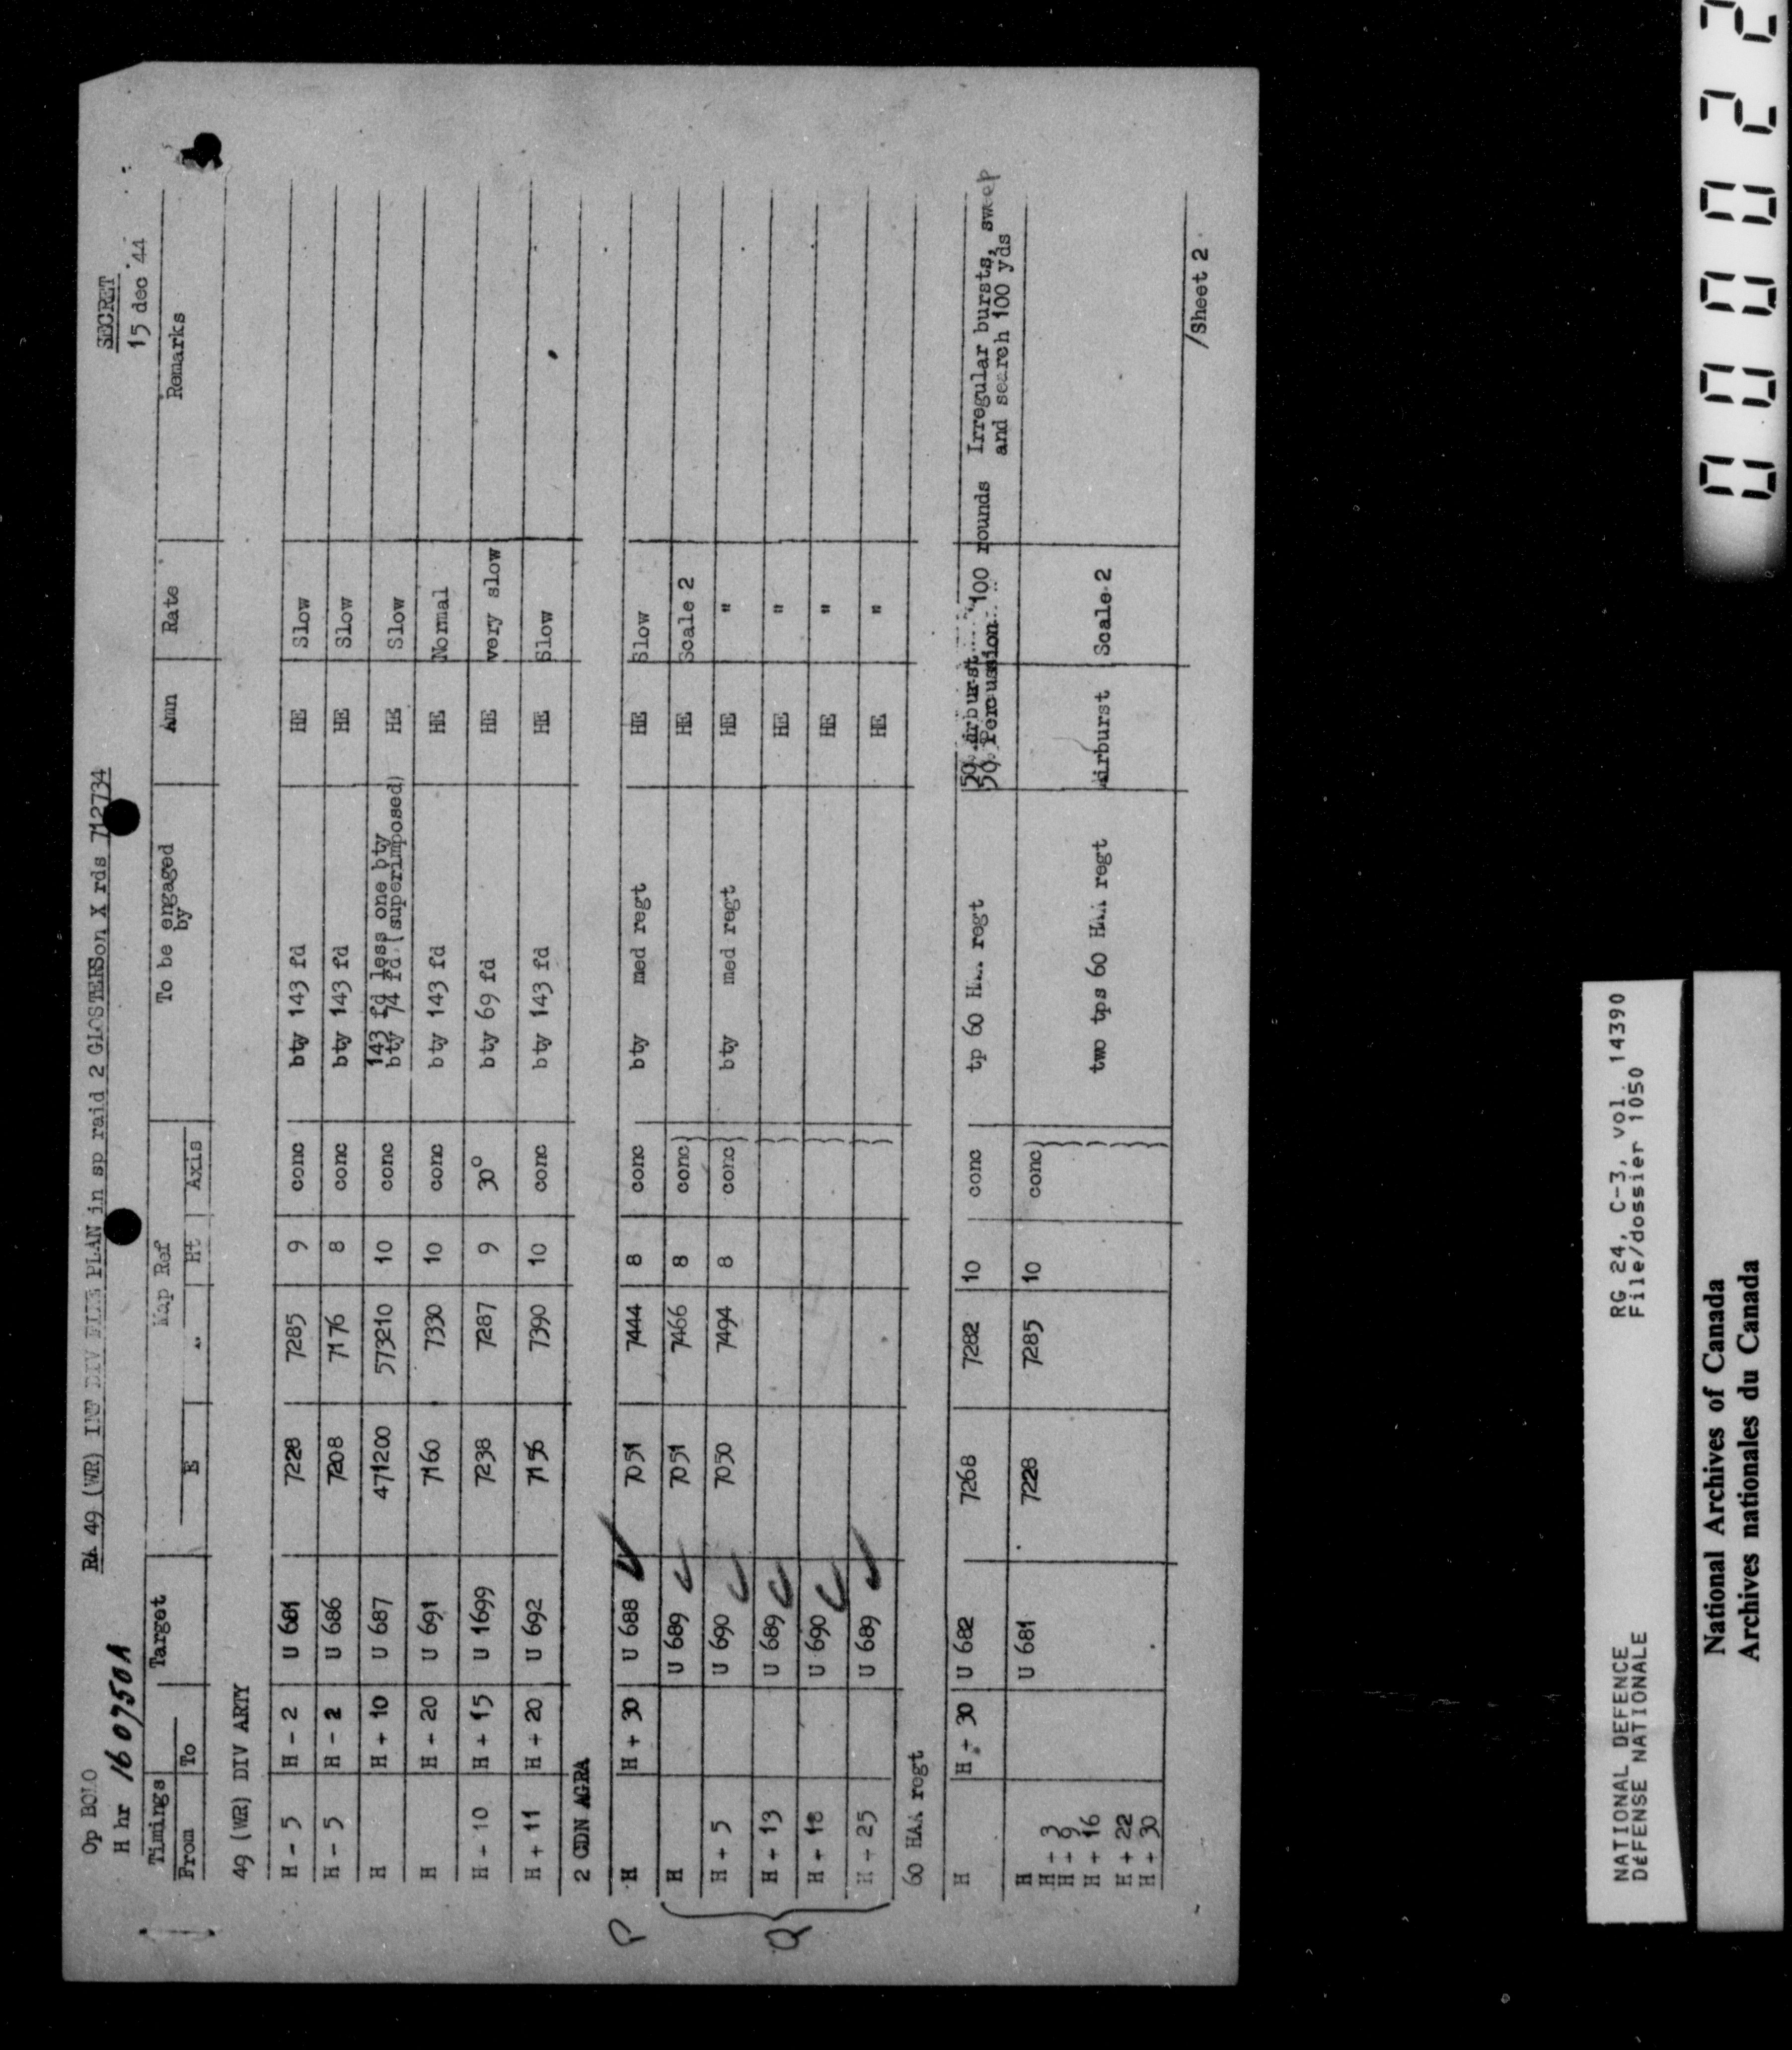 SECRET
15 dec '44
Op BOLO RA 49 (WR) INF DIV FIRE PLAN in sp raid 2 GLOSTERS on X rds 712734
H hr 160750A
Timings Target Map Ref To be engaged by Amn Rate Remarks
From To E Ht Axis
49 (WR) DIV ARTY
H - 5 H - 2 U 681 7228 7285 9 conc bty 143 fd HE Slow
H - 5 H - 2 U 686 7208 7176 8 conc bty 143 fd HE Slow
H H + 10 U 687 471200 573210 10 conc 143 fd less one bty HE Slow
bty 74 fd (superimposed)
H H + 20 U 691 7160 7330 10 conc bty 143 fd HE Normal
H + 10 H + 15 U 1699 7238 7287 9 30° bty 69 fd HE very slow
H + 11 H + 20 U 692 7156 7390 10 conc bty 143 fd HE Slow
2 CDN AGRA
P H H + 30 U 688 7051 7444 8 conc bty med regt HE Slow
H U 689 7051 7466 8 conc) HE Scale 2
H + 5 U 690 7050 7494 8 conc) bty med regt HE "
Q H + 13 U 689 ) HE "
H + 18 U 690 ) HE "
H + 25 U 689 ) HE "
60 HAA regt
H H + 30 U 682 7268 7282 10 conc tp 60 HAA regt 50% Airburst 100 rounds Irregular bursts, sweep
50% Percussion and search 100 yds
H U 681 7228 7285 10 conc)
H + 3
H + 9
H + 16 two tps 60 HAA regt Airburst Scale 2
H + 22
H + 30
/Sheet 2
NATIONAL DEFENCE RG 24, C-3, vol. 14390
DÉFENSE NATIONALE File/dossier 1050
National Archives of Canada
Archives nationales du Canada